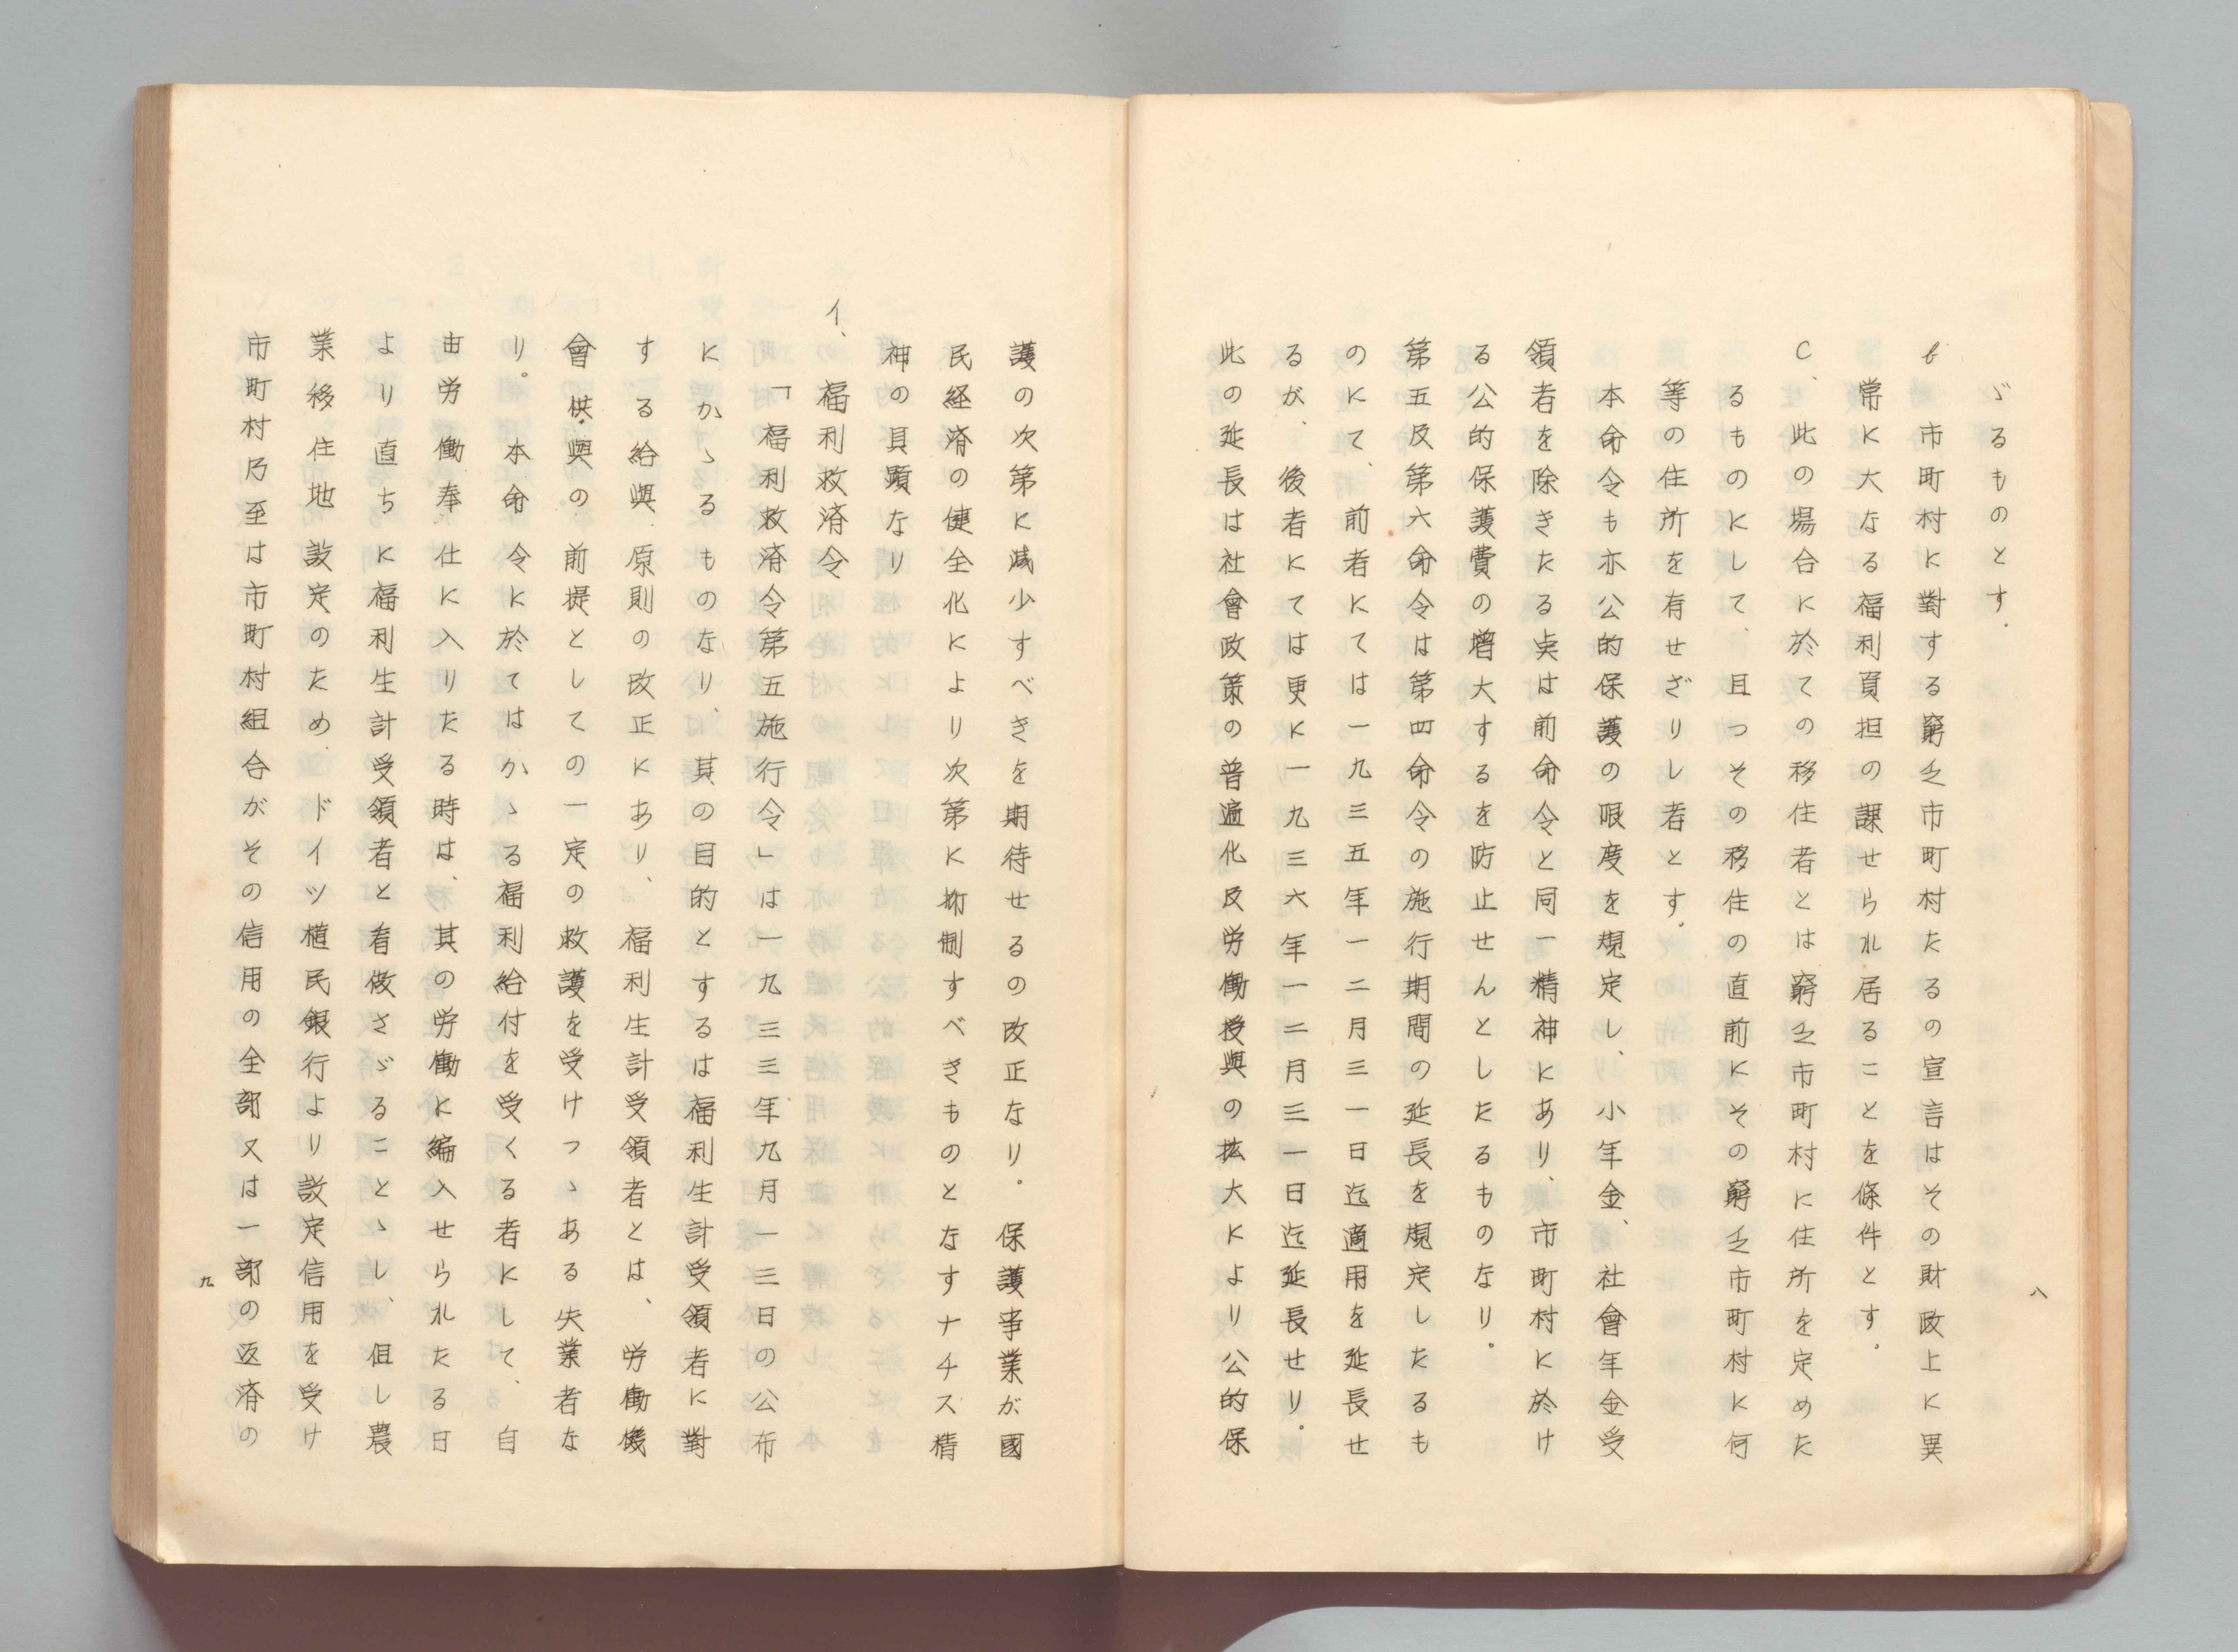 ゞるものとす．
b 市町村に對する窮乏市町村たるの宣言はその財政上に異
常に大なる福利負担の課せられ居ることを條件とす。
C、此の場合に於ての移住者とは窮乏市町村に住所を定めた
るものにして、且つその移住の直前にその窮乏市町村に何
等の住所を有せざりし者とす。
本命令も亦公的保護の限度を規定し、小年金、社會年金受
領者を除きたる点は前命令と同一精神にあり、市町村に於け
る公的保護費の増大するを防止せんとしたるものなり。
第五及第六命令は第四命令の施行期間の延長を規定したるも
のにて、前者にては一九三五年一二月三一日迄適用を延長せ
るが、後者にては更に一九三六年一二月三一日迄延長せり．
此の延長は社會政策の普遍化及労働授與の拡大により公的保
八
護の次第に減少すべきを期待せるの改正なり．保護事業が國
民経済の健全化により次第に抑制すべきものとなすナチス精
神の具顕なり
イ、福利救済令
「福利救済令第五施行令」は一九三三年九月一三日の公布
にかゝるものなり、其の目的とするは福利生計受領者に對
する給與原則の改正にあり、福利生計受領者とは、労働機
會供與の前提としての一定の救護を受けつゝある失業者な
り。本命令に於てはかゝる福利給付を受くる者にして、自
由労働奉仕に入りたる時は、其の労働に編入せられたる日
より直ちに福利生計受領者と看做さゞることゝし、但し農
業移住地設定のため、ドイツ植民銀行より設定信用を受け
市町村乃至は市町村組合がその信用の全部又は一部の返済の
九